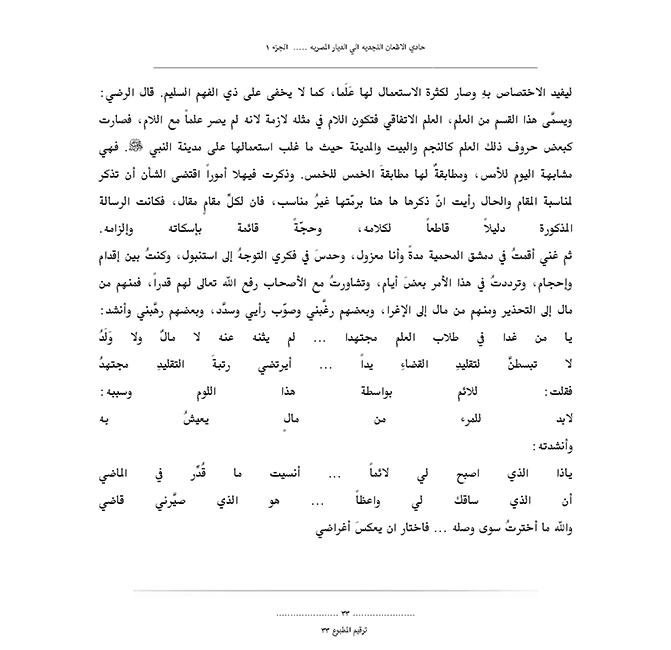 حادي الاظعان النجديه الي الديار المصريه ..... الجزء ١
ليفيد الاختصاص بهِ وصار لكثرة الاستعمال لها عَلَما، كما لا يخفى على ذي الفهم السليم. قال الرضي:
ويسمَّى هذا القسم من العلم، العلم الاتفاقي فتكون اللام في مثله لازمة لانه لم يصر علماً مع اللام، فصارت
كبعض حروف ذلك العلم كالنجم والبيت والمدينة حيث ما غلب استعمالها على مدينة النبي ﷺ. فهي
مشابهة اليوم للأمس، ومطابقةٌ لها مطابقةَ الخمس للخمس. وذكرت فيهلا أموراً اقتضى الشأن أن تذكر
لمناسبة المقام والحال رأيت انّ ذكرها ها هنا برمّتها غيرُ مناسب، فان لكلِّ مقامٍ مقال، فكانت الرسالة
المذكورة دليلاً قاطعاً لكلامه، وحجّةً قائمة بإسكاته وإلزامه.
ثم غني أقمتُ في دمشق المحمية مدةً وأنا معزول، وحدسَ في فكري التوجهُ إلى استنبول، وكنتُ بين إقدام
وإحجام، وترددتُ في هذا الأمر بعضَ أيام، وتشاورتُ مع الأصحاب رفع الله تعالى لهم قدراً، فمنهم من
مال إلى التحذير ومنهم من مال إلى الإغرا، وبعضهم رغَّبني وصوّب رأيي وسدَّد، وبعضهم رهَّبني وأنشد:
يا من غدا في طلاب العلم مجتهدا ... لم يثنه عنه لا مالٌ ولا وَلَدُ
لا تبسطنَّ لتقليدِ القضاءِ يداً ... أيرتضي رتبةَ التقليدِ مجتهدُ
فقلت: للائم بواسطة هذا اللوم وسببه:
لابد للمرء من مالٍ يعيشُ به
وأنشدته:
ياذا الذي اصبح لي لائماً ... أنسيت ما قُدِّر في الماضي
أن الذي ساقك لي واعظاً ... هو الذي صيَّرني قاضي
والله ما أخترتُ سوى وصله ... فاختار ان يعكسَ أغراضي
...................... ٣٣ ......................
ترقيم المطبوع ٣٣